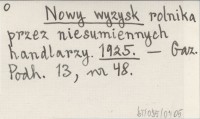 o
Nowy wyzysk rolnika
przez niesumiennych
handlarzy. 1925. — Gaz.
Podh. 13, nr 48.